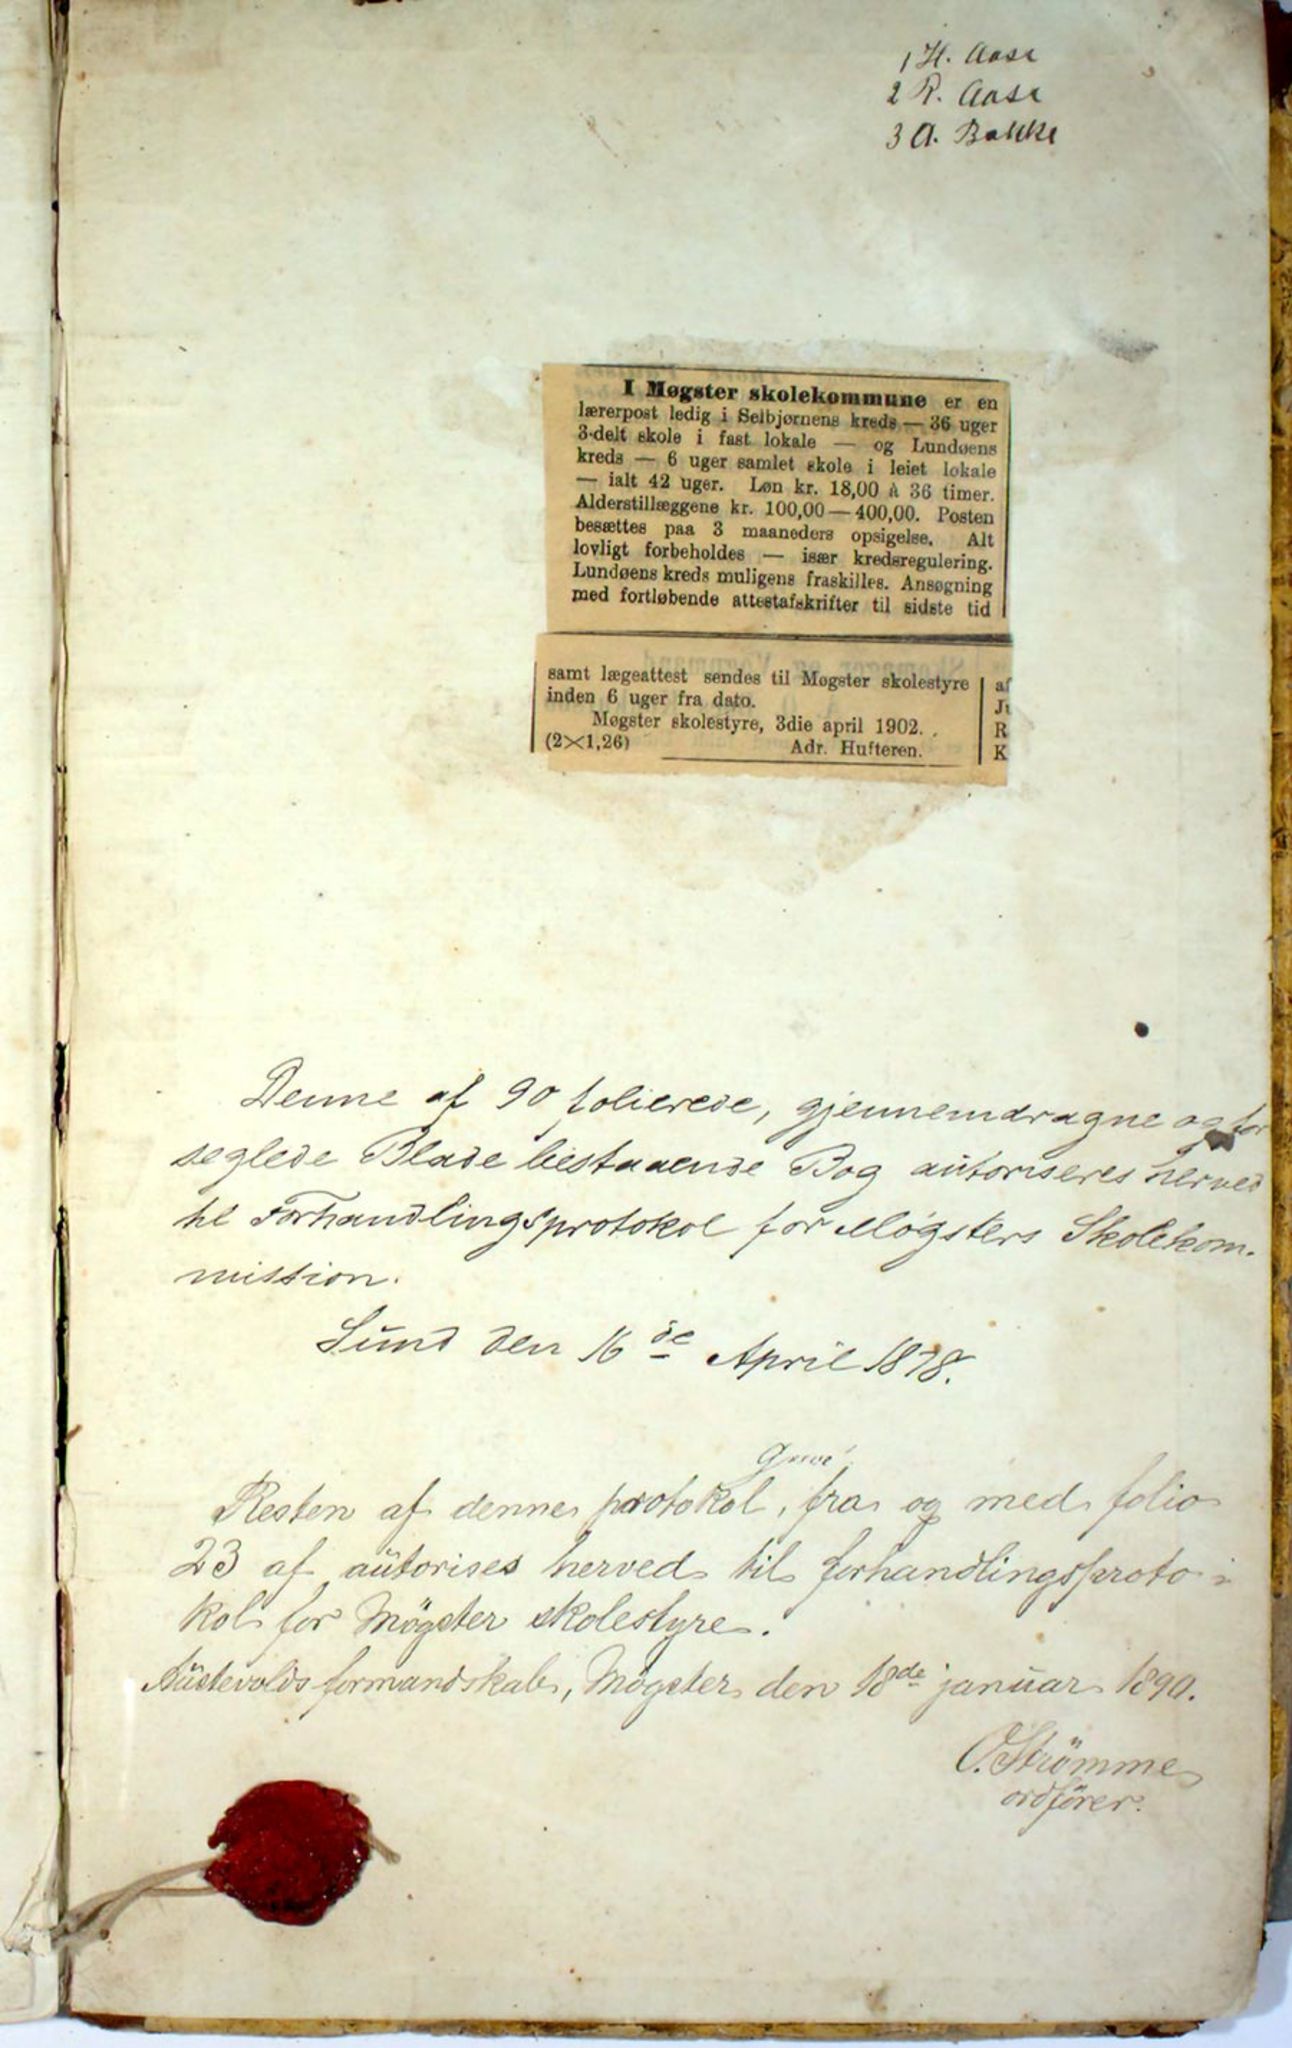 1 H. Aase
2 R. Aase
3 A. Bakke
I Møgster skolekommune er en
lærerpost ledig i Selbjørnens kreds — 36 uger
3-delt skole i fast lokale — og Lundøens
kreds — 6 uger samlet skole i leiet lokale
— ialt 42 uger. Løn kr. 18,00 à 36 timer.
Alderstillæggene kr. 100,00—400,00. Posten
besættes paa 3 maaneders opsigelse. Alt
lovligt forbeholdes — især kredsregulering.
Lundøens kreds muligens fraskilles. Ansøgning
med fortløbende attestafskrifter til sidste tid
samt lægeattest sendes til Møgster skolestyre
inden 6 uger fra dato.
Møgster skolestyre, 3die april 1902.
(2×1,26) Adr. Hufteren.
Denne af 90 folierede, gjennemdragne og for
seglede Blade bestaaende Bog autoriseres herved
til Forhandlingsprotokol for Møgsters Skolekom-
mission.
Sund den 16de April 1878.
Resten af denne protokol, fra og med folio
23 af autorises herved til forhandlingsproto-
kol for Møgster skolestyre.
Austevolds formandskab, Møgster den 18de januar 1890.
O. Strömme
ordförer.